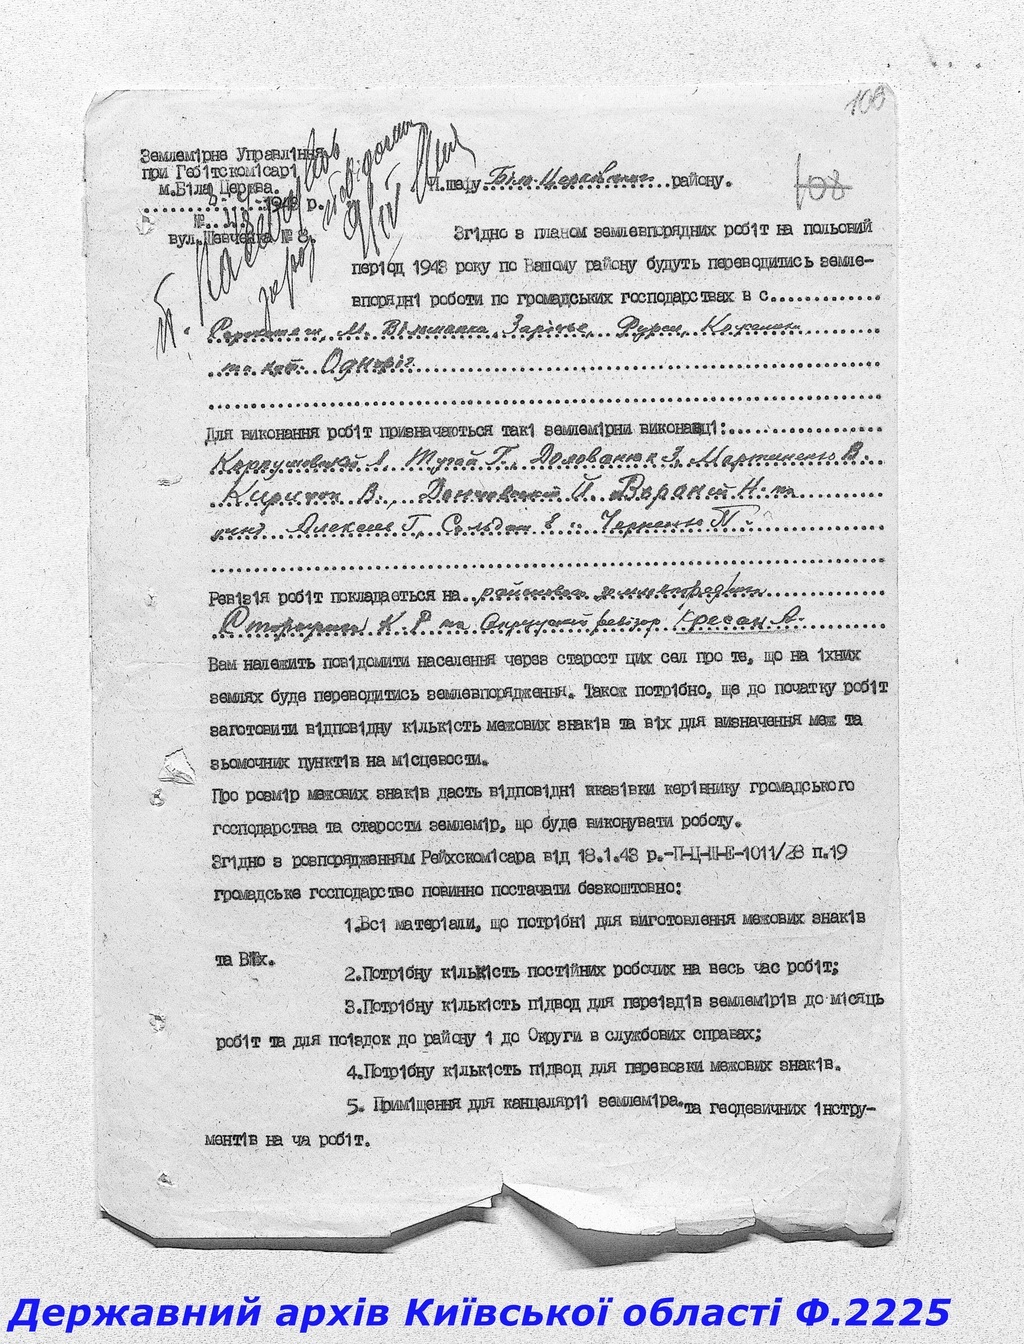 108
Землемірне Управління
при Гебітскомісарі
м.Біла Церква.
1943 р.
№
вул.Шевченка № 8.
П.шефу Біло-Церківського району.
108
Згідно з планом землевпорядних робіт на польовий
період 1943 року по Вашому району будуть переводитись земле-
впорядні роботи по громадських господарствах в с.
М. Вільшанка, Зарічье, Фурси, Коженики
та хут. Одноріг
Для виконання робіт призначаються такі землемірни виконавці:
Тугай Г., Мартиненко В.
Киричок В., Н. та
Алексеев Г, Черненко П.
Ревізія робіт покладається на районового
К. Р та Окружний ревізор Кресан А.
Вам належить повідомити населення через старост цих сел про те, що на їхних
землях буде переводитись землевпорядження. Також потрібно, ще до початку робіт
заготовити відповідну кількість межових знаків та віх для визначення меж та
зьомочних пунктів на місцевости.
Про розмір межових знаків дасть відповідні вказівки керівнику громадського
господарства та старости землемір, що буде виконувати роботу.
Згідно з розпорядженням Рейхскомісара від 18.1.43 р.-П-Ц-Ш-Е-1011/28 п.19
громадське господарство повинно постачати безкоштовно:
1.Всі матеріали, що потрібні для виготовлення межових знаків
та Віх.
2.Потрібну кількість постійних робочих на весь час робіт;
3.Потрібну кількість підвод для переїздів землемірів до місяць
робіт та для поїздок до району і до Округи в службових справах;
4.Потрібну кількість підвод для перевозки межових знаків.
5. Приміщення для канцелярії землеміра.та геодезичних інстру-
ментів на ча робіт.
Державний архів Київської області Ф.2225